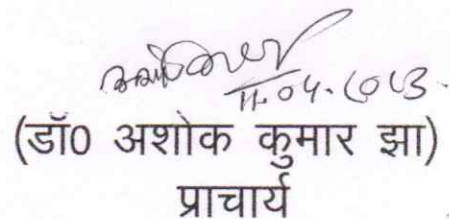 11.04.2023.
(डॉ0 अशोक कुमार झा)
प्राचार्य